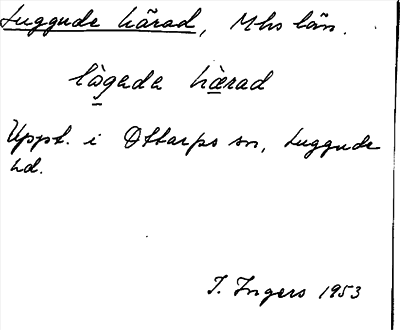 Luggude härad, Mhs län.
lògada hærad
Uppt. i Ottarps sn, Luggude
hd.
I. Ingers 1953